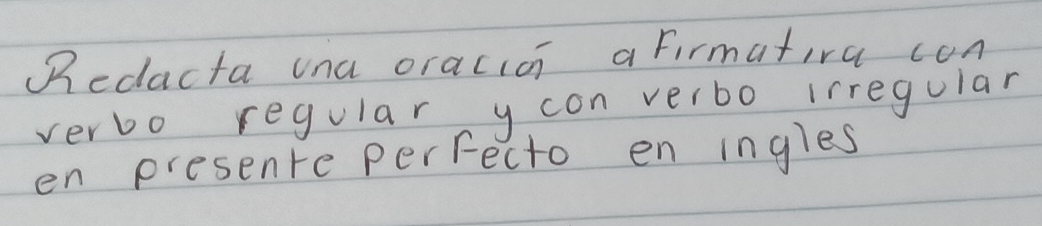 Redacta una oración afirmativa con
verbo regular y con verbo irregular
en presente perfecto en ingles